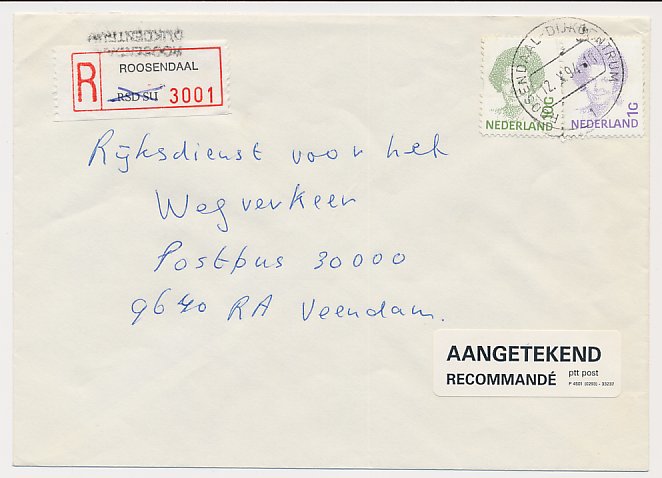 ROOSENDAAL
DIJKCENTRUM
ROOSENDAAL
R
RSD SU 3001
ROOSENDAAL-DIJKCENTRUM
12.X.94
10G
NEDERLAND
1G
NEDERLAND
Rijksdienst voor het
Wegverkeer
Postbus 30000
9640 RA Veendam.
AANGETEKEND
RECOMMANDÉ ptt post